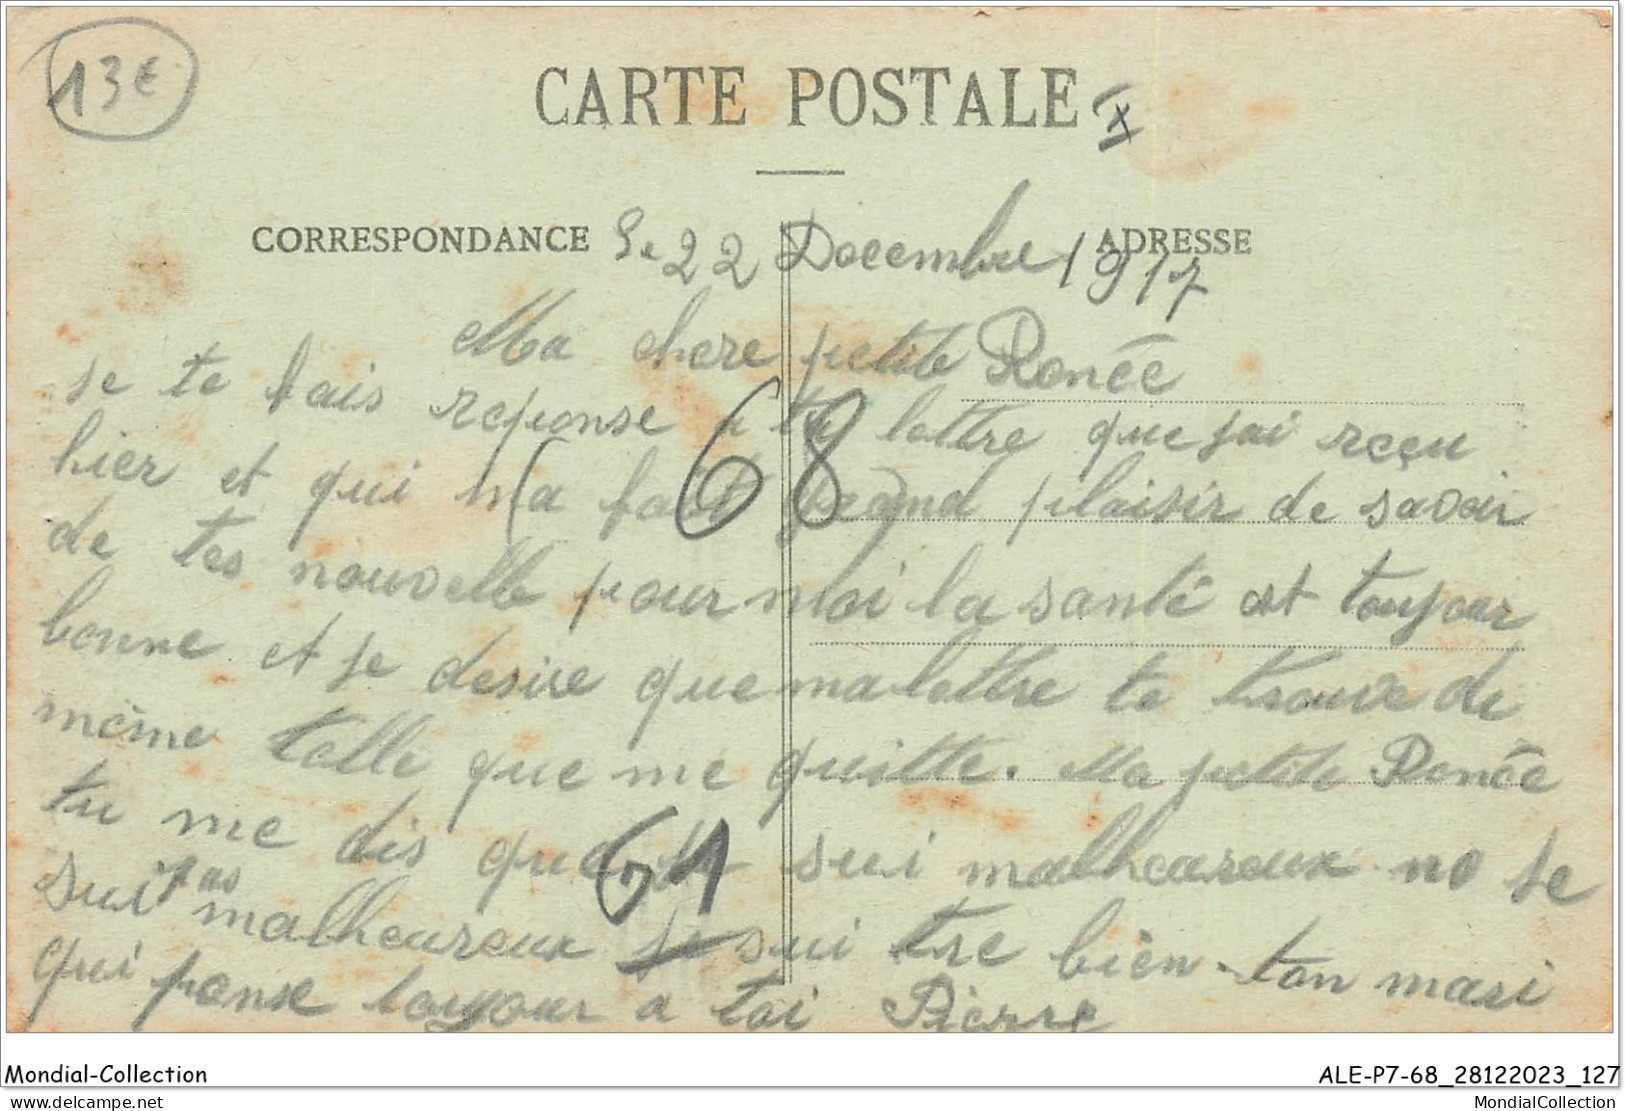 13€
CARTE POSTALE
CORRESPONDANCE
ADRESSE
Le 22 Decembre 1917
Ma chere petite Renée
Je te fais reponse a ta lettre que jai reçu
hier et qui m'a fait grand plaisir de savoir
de tes nouvelle pour moi la santé est toujour
bonne et je desire que ma lettre te trouve de
même telle que me quitte. Ma petite Renée
tu me dis que je sui malheureux no je
sui pas malheureux je sui tre bien ton mari
qui panse toujour a toi Pierre
(68)
61
Mondial-Collection
ALE-P7-68_28122023_127
delcampe.net
MondialCollection